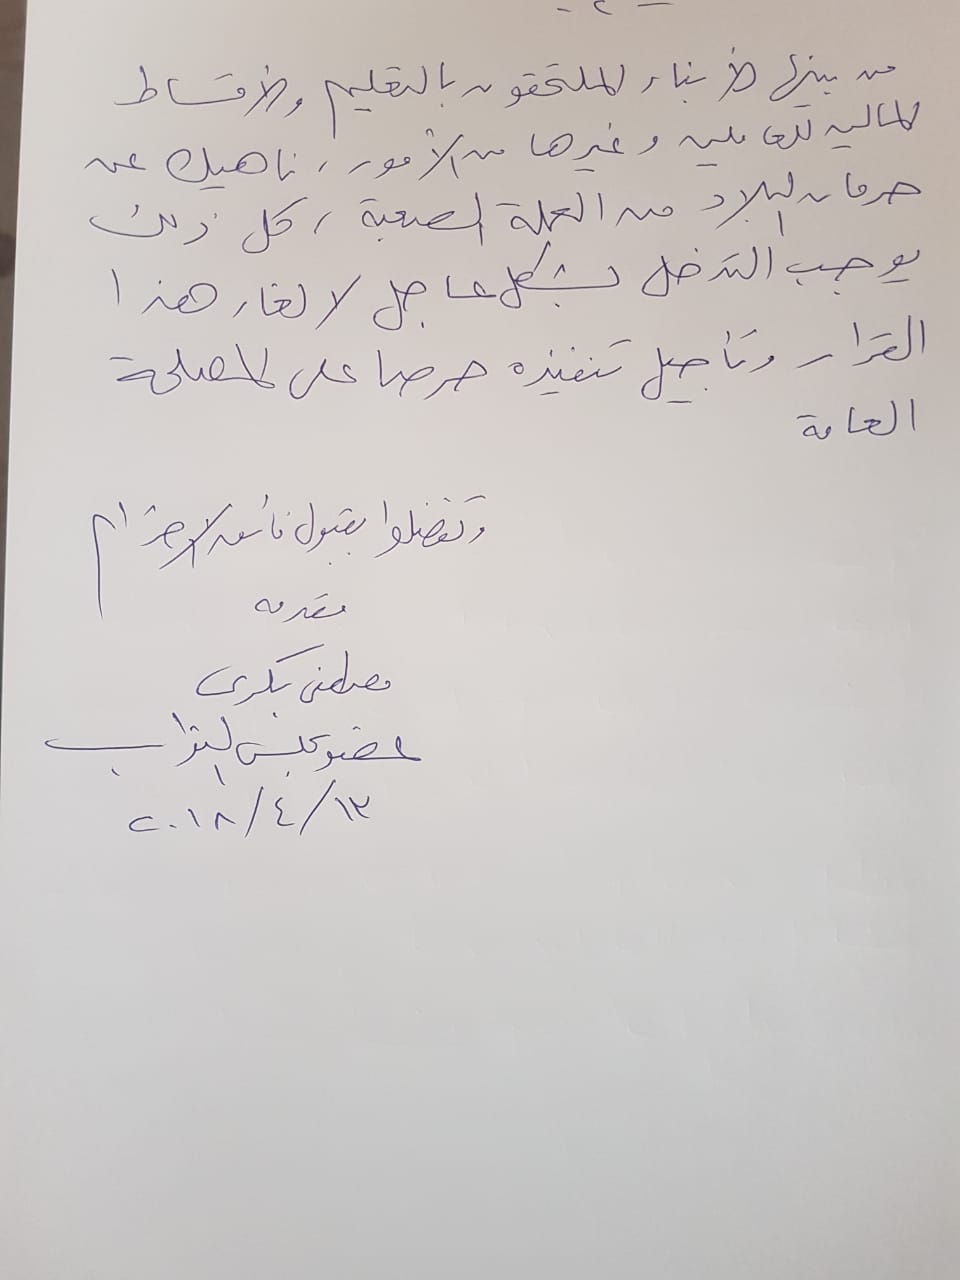 - ٢ -
من بينها الأبناء الملتحقون بالتعليم والأقساط
المالية للعاملين وغيرها من الأمور، ناهيك عن
حرمان البلاد من العملة الصعبة، كل ذلك
يوجب التدخل بشكل عاجل لالغاء هذا
القرار وتأجيل تنفيذه حرصا على المصلحة
العامة
وتفضلوا بقبول فائق الاحترام
مقدمه
مصطفى بكرى
عضو مجلس النواب
١٢/٤/٢٠١٨